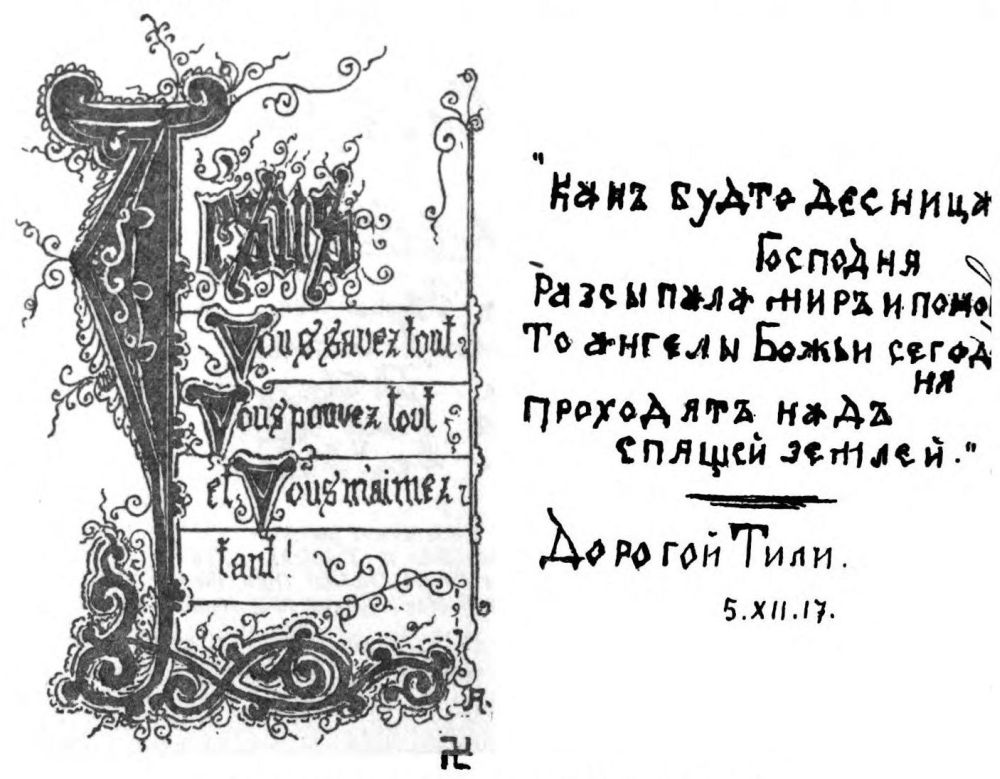 Jésus
Vous savez tout
Vous pouvez tout
et Vous m'aimez
tant!
A.
"Какъ будто десница
Господня
Разсыпала миръ и поко
То ангелы Божьи сегод
ня
проходятъ надъ
спящей землей."
Дорогой Тили.
5.XII.17.